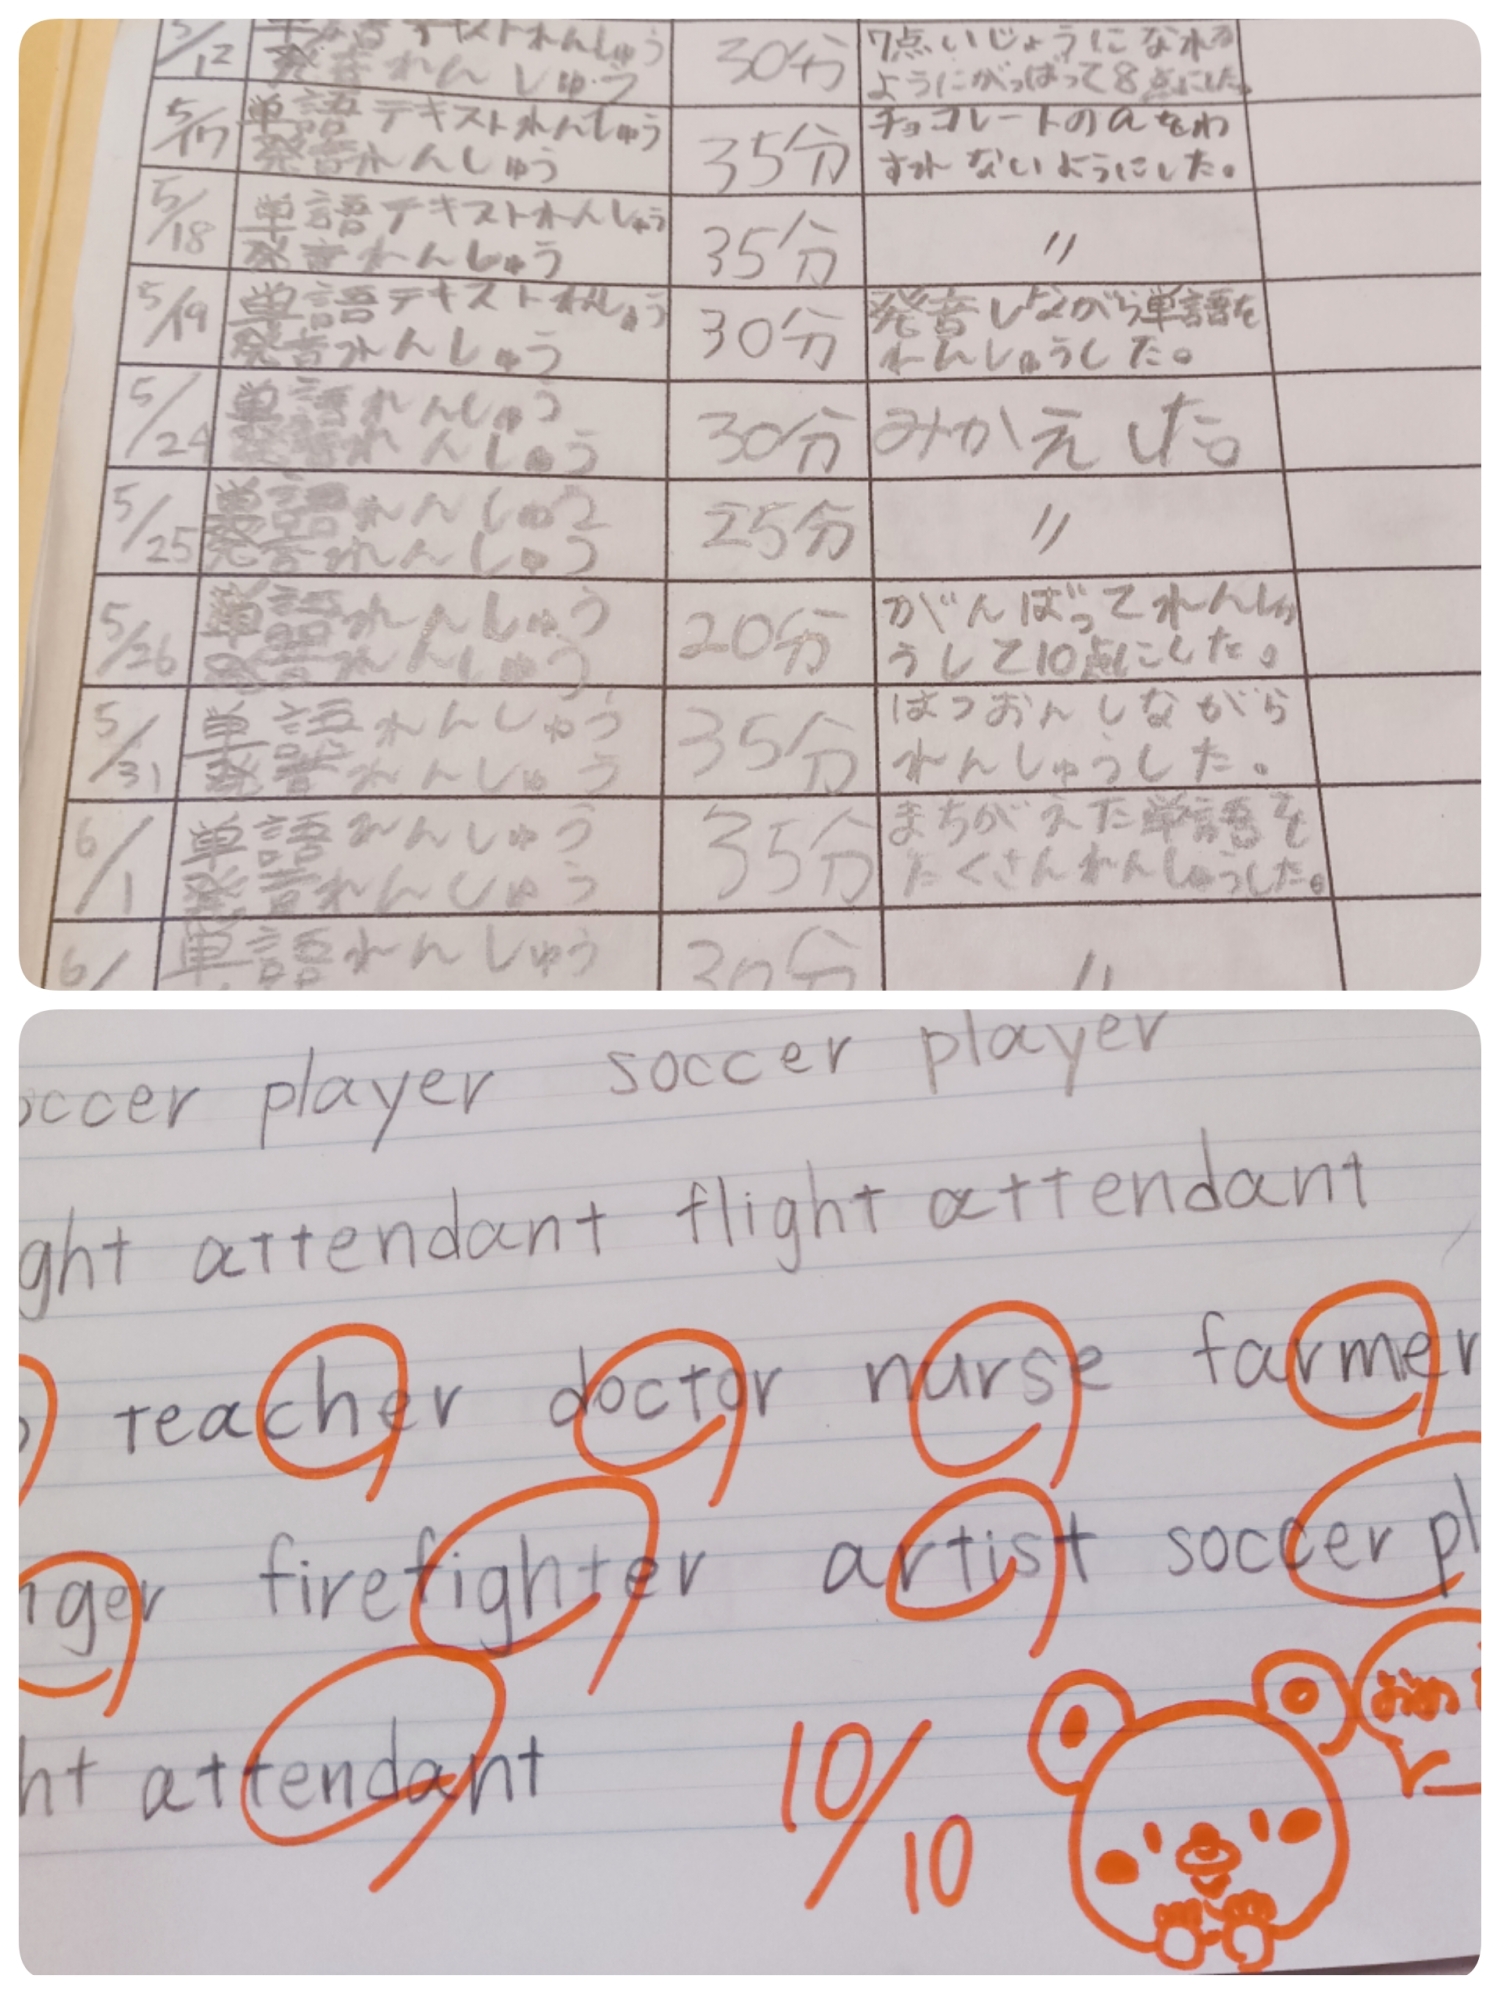 5/12 単語テキストれんしゅう
発音れんしゅう
30分
7点いじょうになれる
ようにがっばって8点にした。
5/17 単語テキストれんしゅう
発音れんしゅう
35分
チョコレートのaをわ
すれないようにした。
5/18 単語テキストれんしゅう
発音れんしゅう
35分
〃
5/19 単語テキストれんしゅう
発音れんしゅう
30分
発音しながら単語を
れんしゅうした。
5/24 単語れんしゅう
発音れんしゅう
30分
みかえした。
5/25 単語れんしゅう
発音れんしゅう
25分
〃
5/26 単語れんしゅう
発音れんしゅう
20分
がんばってれんしゅ
うして10点にした。
5/31 単語れんしゅう
発音れんしゅう
35分
はつおんしながら
れんしゅうした。
6/1 単語れんしゅう
発音れんしゅう
35分
まちがえた単語を
たくさんれんしゅうした。
6/ 単語れんしゅう
30分
〃
occer player soccer player
ght attendant flight attendant
teacher doctor nurse farmer
nger firefighter artist soccer pl
ht attendant
10/10
おめ